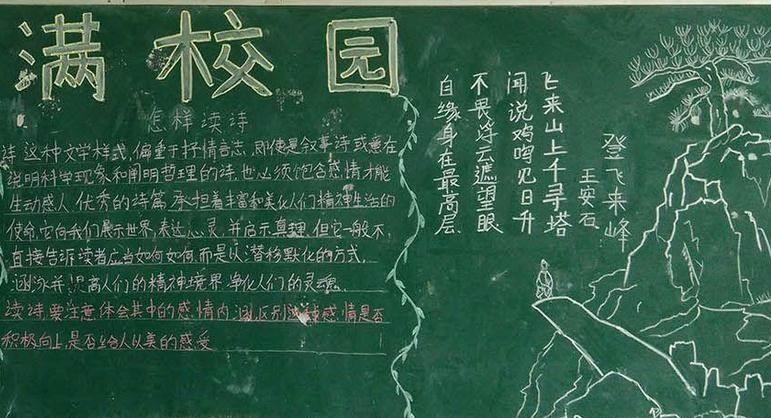 满校园
怎样读诗
诗这种文学样式,偏重于抒情言志,即使是叙事诗或意在
说明科学现象和阐明哲理的诗,也必须饱含感情才能
生动感人,优秀的诗篇,承担着丰富和美化人们精神生活的
使命,它向我们展示世界,表达心灵,并启示真理,但它一般不
直接告诉读者应当如何如何而是以潜移默化的方式,
涵泳并提高人们的精神境界,净化人们的灵魂.
读诗要注意体会其中的感情内涵,区别感情是否
积极向上,是否给人以美的感受
登飞来峰
王安石
飞来山上千寻塔
闻说鸡鸣见日升
不畏浮云遮望眼
自缘身在最高层